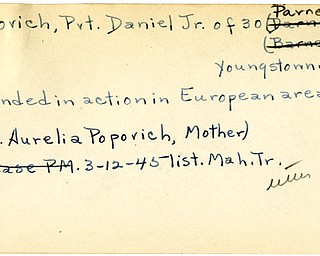 Parne
ovich, Pvt. Daniel Jr. of 30 (Darne
(Barne
Youngstown
nded in action in European area
. Aurelia Popovich, Mother)
ease PM. 3-12-45 list. Mah. Tr.